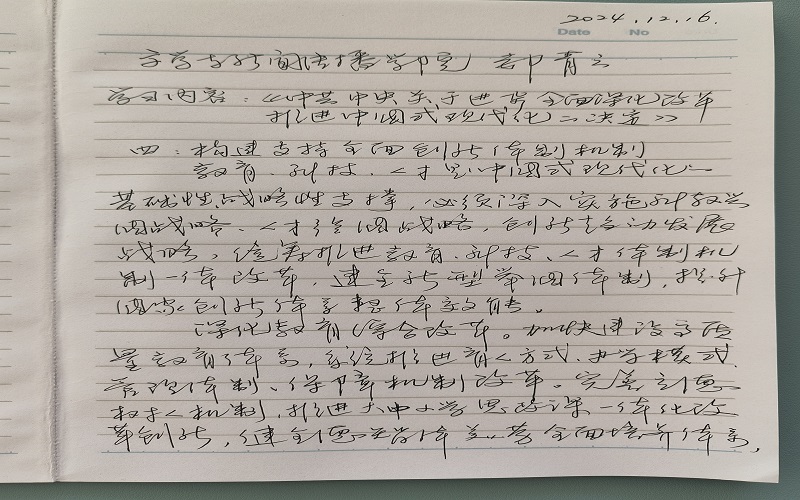 2024.12.16.
Date No
文学与新闻传播学院 郭青云
学习内容:《中共中央关于进一步全面深化改革
推进中国式现代化的决定》
四、构建支持全面创新体制机制
教育、科技、人才是中国式现代化的
基础性、战略性支撑,必须深入实施科教兴
国战略、人才强国战略,创新驱动发展
战略,统筹推进教育、科技、人才体制机
制一体改革,健全新型举国体制,提升
国家创新体系整体效能。
深化教育综合改革。加快建设高质
量教育体系,统筹推进育人方式、办学模式、
管理体制、保障机制改革。完善立德
树人机制,推进大中小学思政课一体化改
革创新,健全德智体美劳全面培养体系,